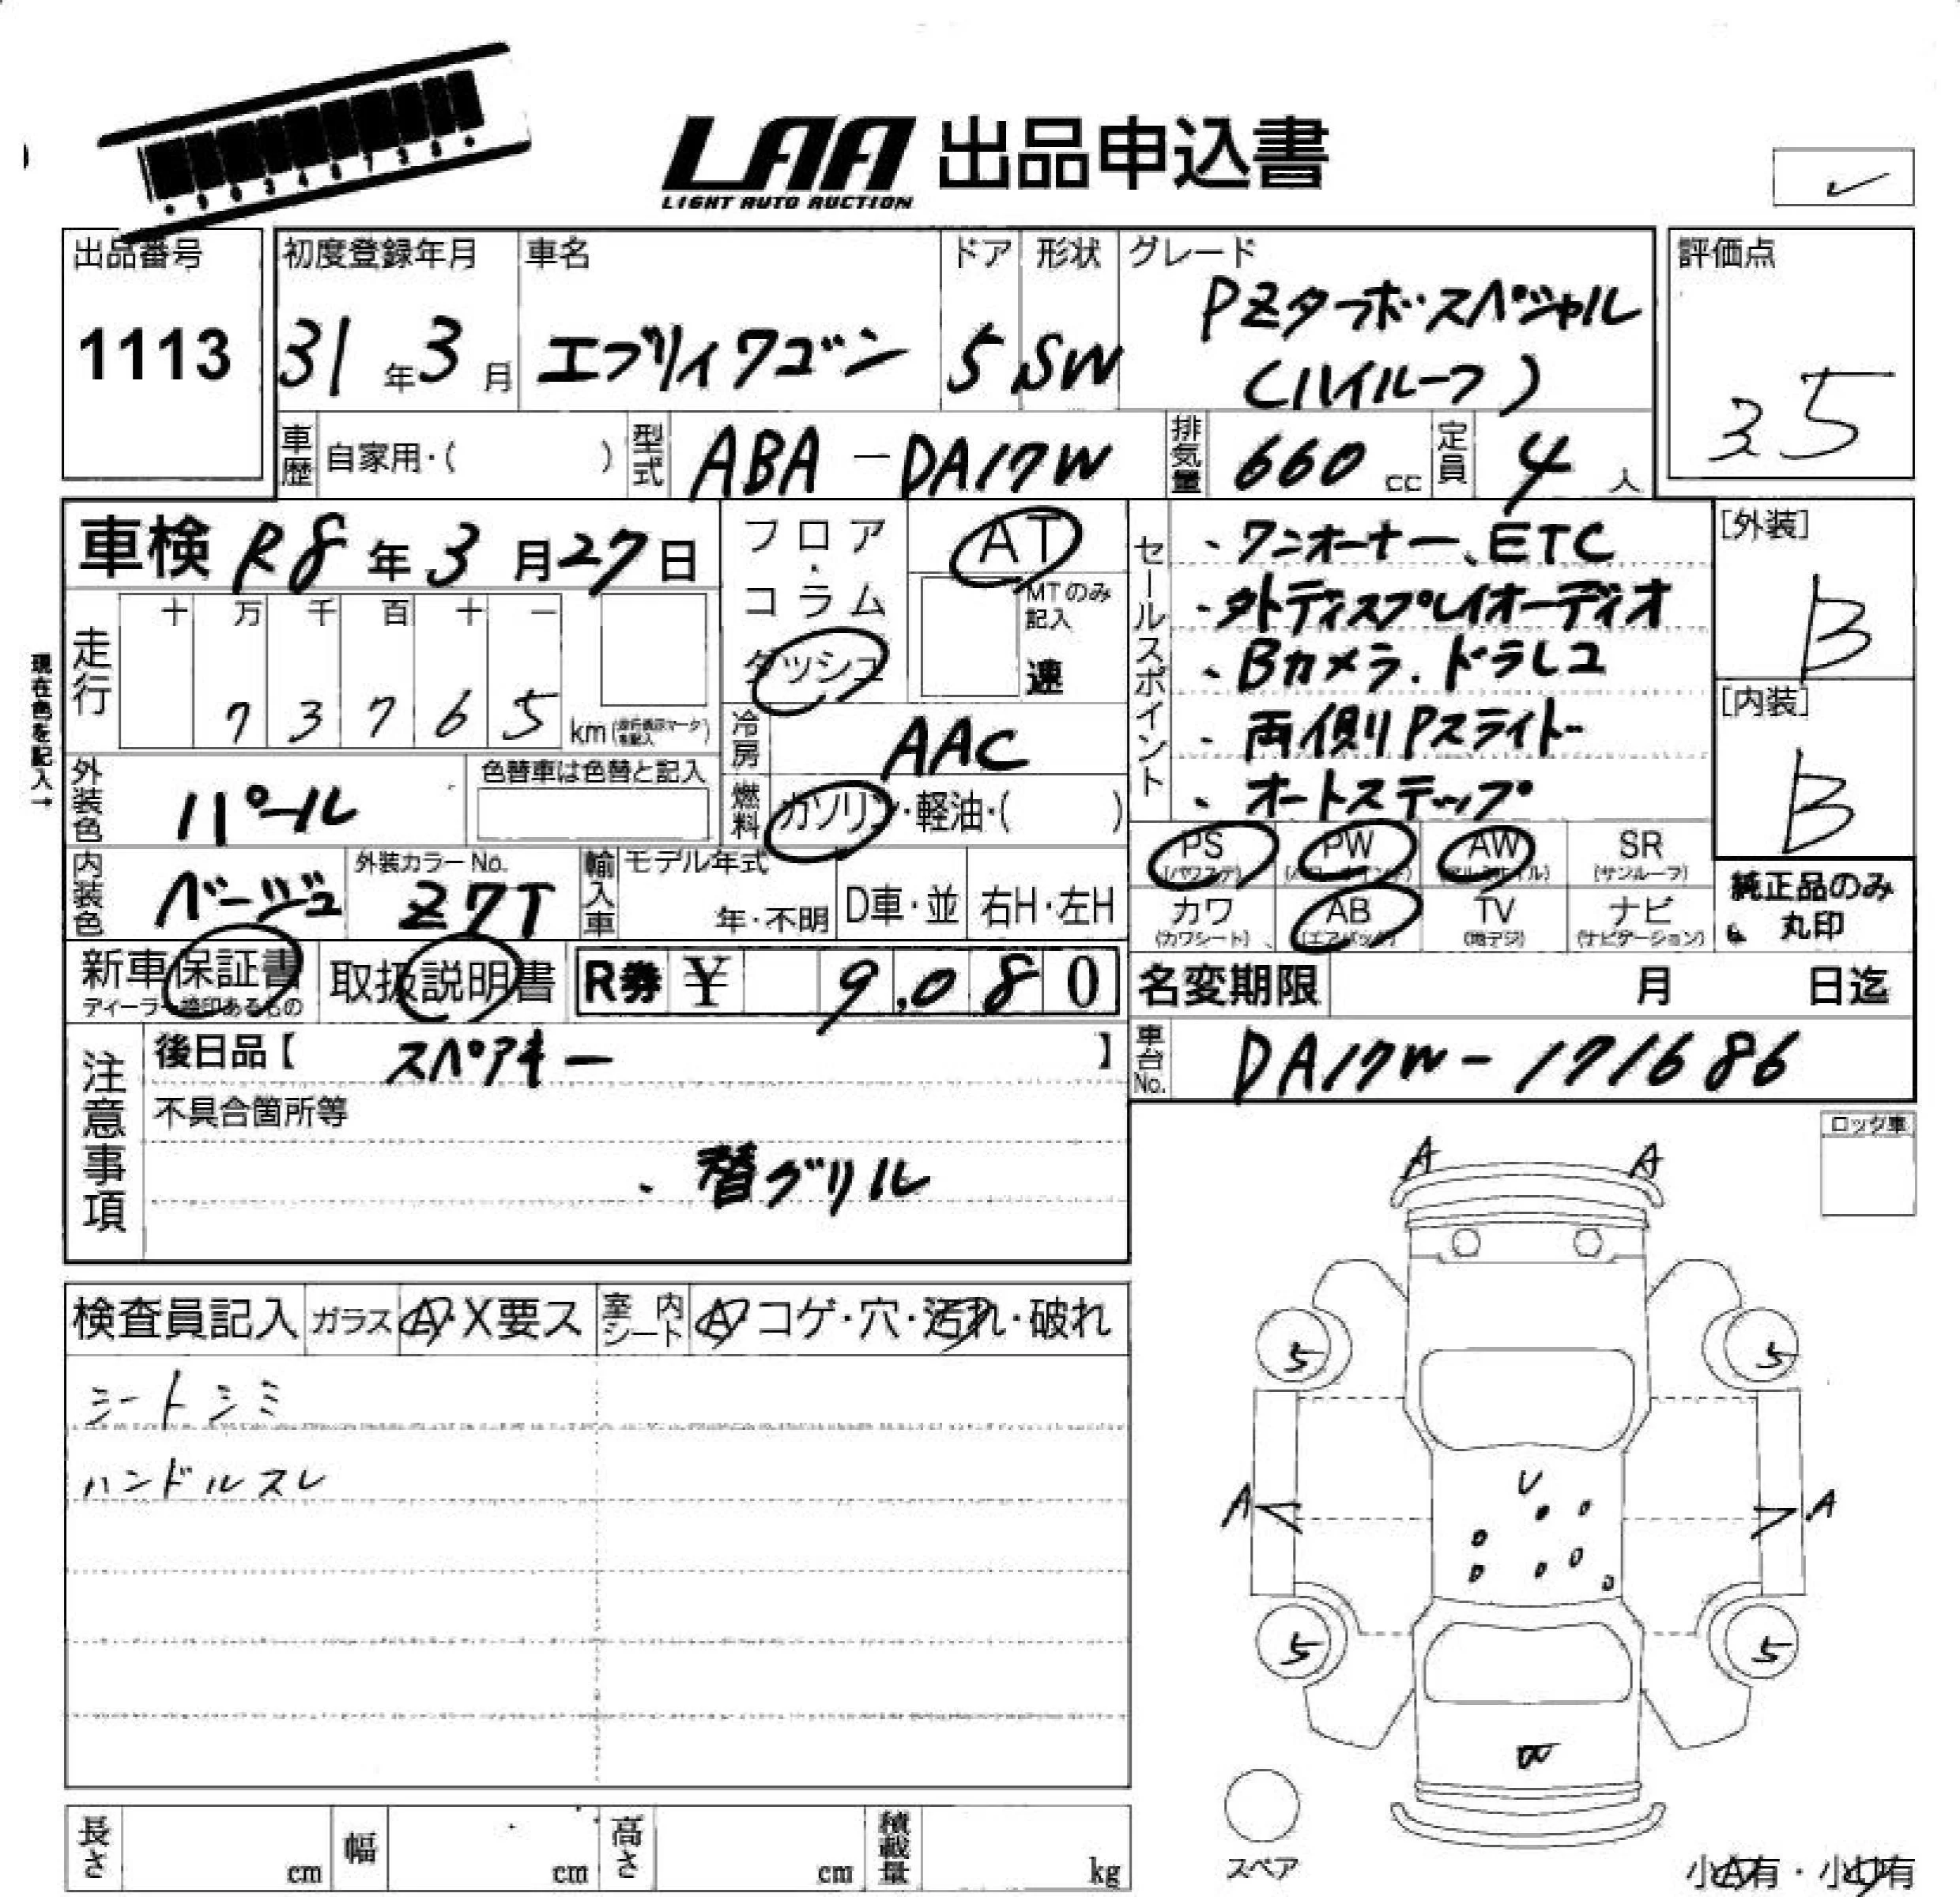 LAA 出品申込書
LIGHT AUTO AUCTION
出品番号
1113
初度登録年月
31年3月
車名
エブリイワゴン
ドア
5
形状
SW
グレード
PZターボスペシャル
(ハイルーフ)
評価点
3.5
車歴 自家用・( )
型式 ABA-DA17W
排気量 660cc
定員 4人
車検 R8年3月27日
フロア・コラム
ダッシュ
AT
MTのみ記入
速
セールスポイント
・ワンオーナー、ETC
・外ディスプレイオーディオ
・Bカメラ.ドラレコ
・両側Pスライド
・オートステップ
[外装]
B
[内装]
B
現在色を記入→
走行
十 万 千 百 十 一
7 3 7 6 5 km
冷房 AAC
外装色 パール
色替車は色替と記入
燃料 ガソリン・軽油・( )
内装色 ベージュ
外装カラーNo.
Z7T
輸入車
モデル年式
年・不明
D車・並
右H・左H
PS (パワステ)
PW (パワーウインドウ)
AW (アルミホイル)
SR (サンルーフ)
カワ (カワシート)
AB (エアバッグ)
TV (地デジ)
ナビ (ナビゲーション)
純正品のみ
丸印
新車保証書
取扱説明書
R券 ¥ 9,080
名変期限 月 日迄
注意事項
後日品【 スペアキー 】
車台No. DA17W-171686
不具合箇所等
・替グリル
ロック車
検査員記入
ガラス A・X要ス
室内シート A コゲ・穴・汚れ・破れ
シートシミ
ハンドルスレ
A A
5 5
U
A A
5 5
W
スペア
小A有・小U有
長さ cm
幅 cm
高さ cm
積載量 kg